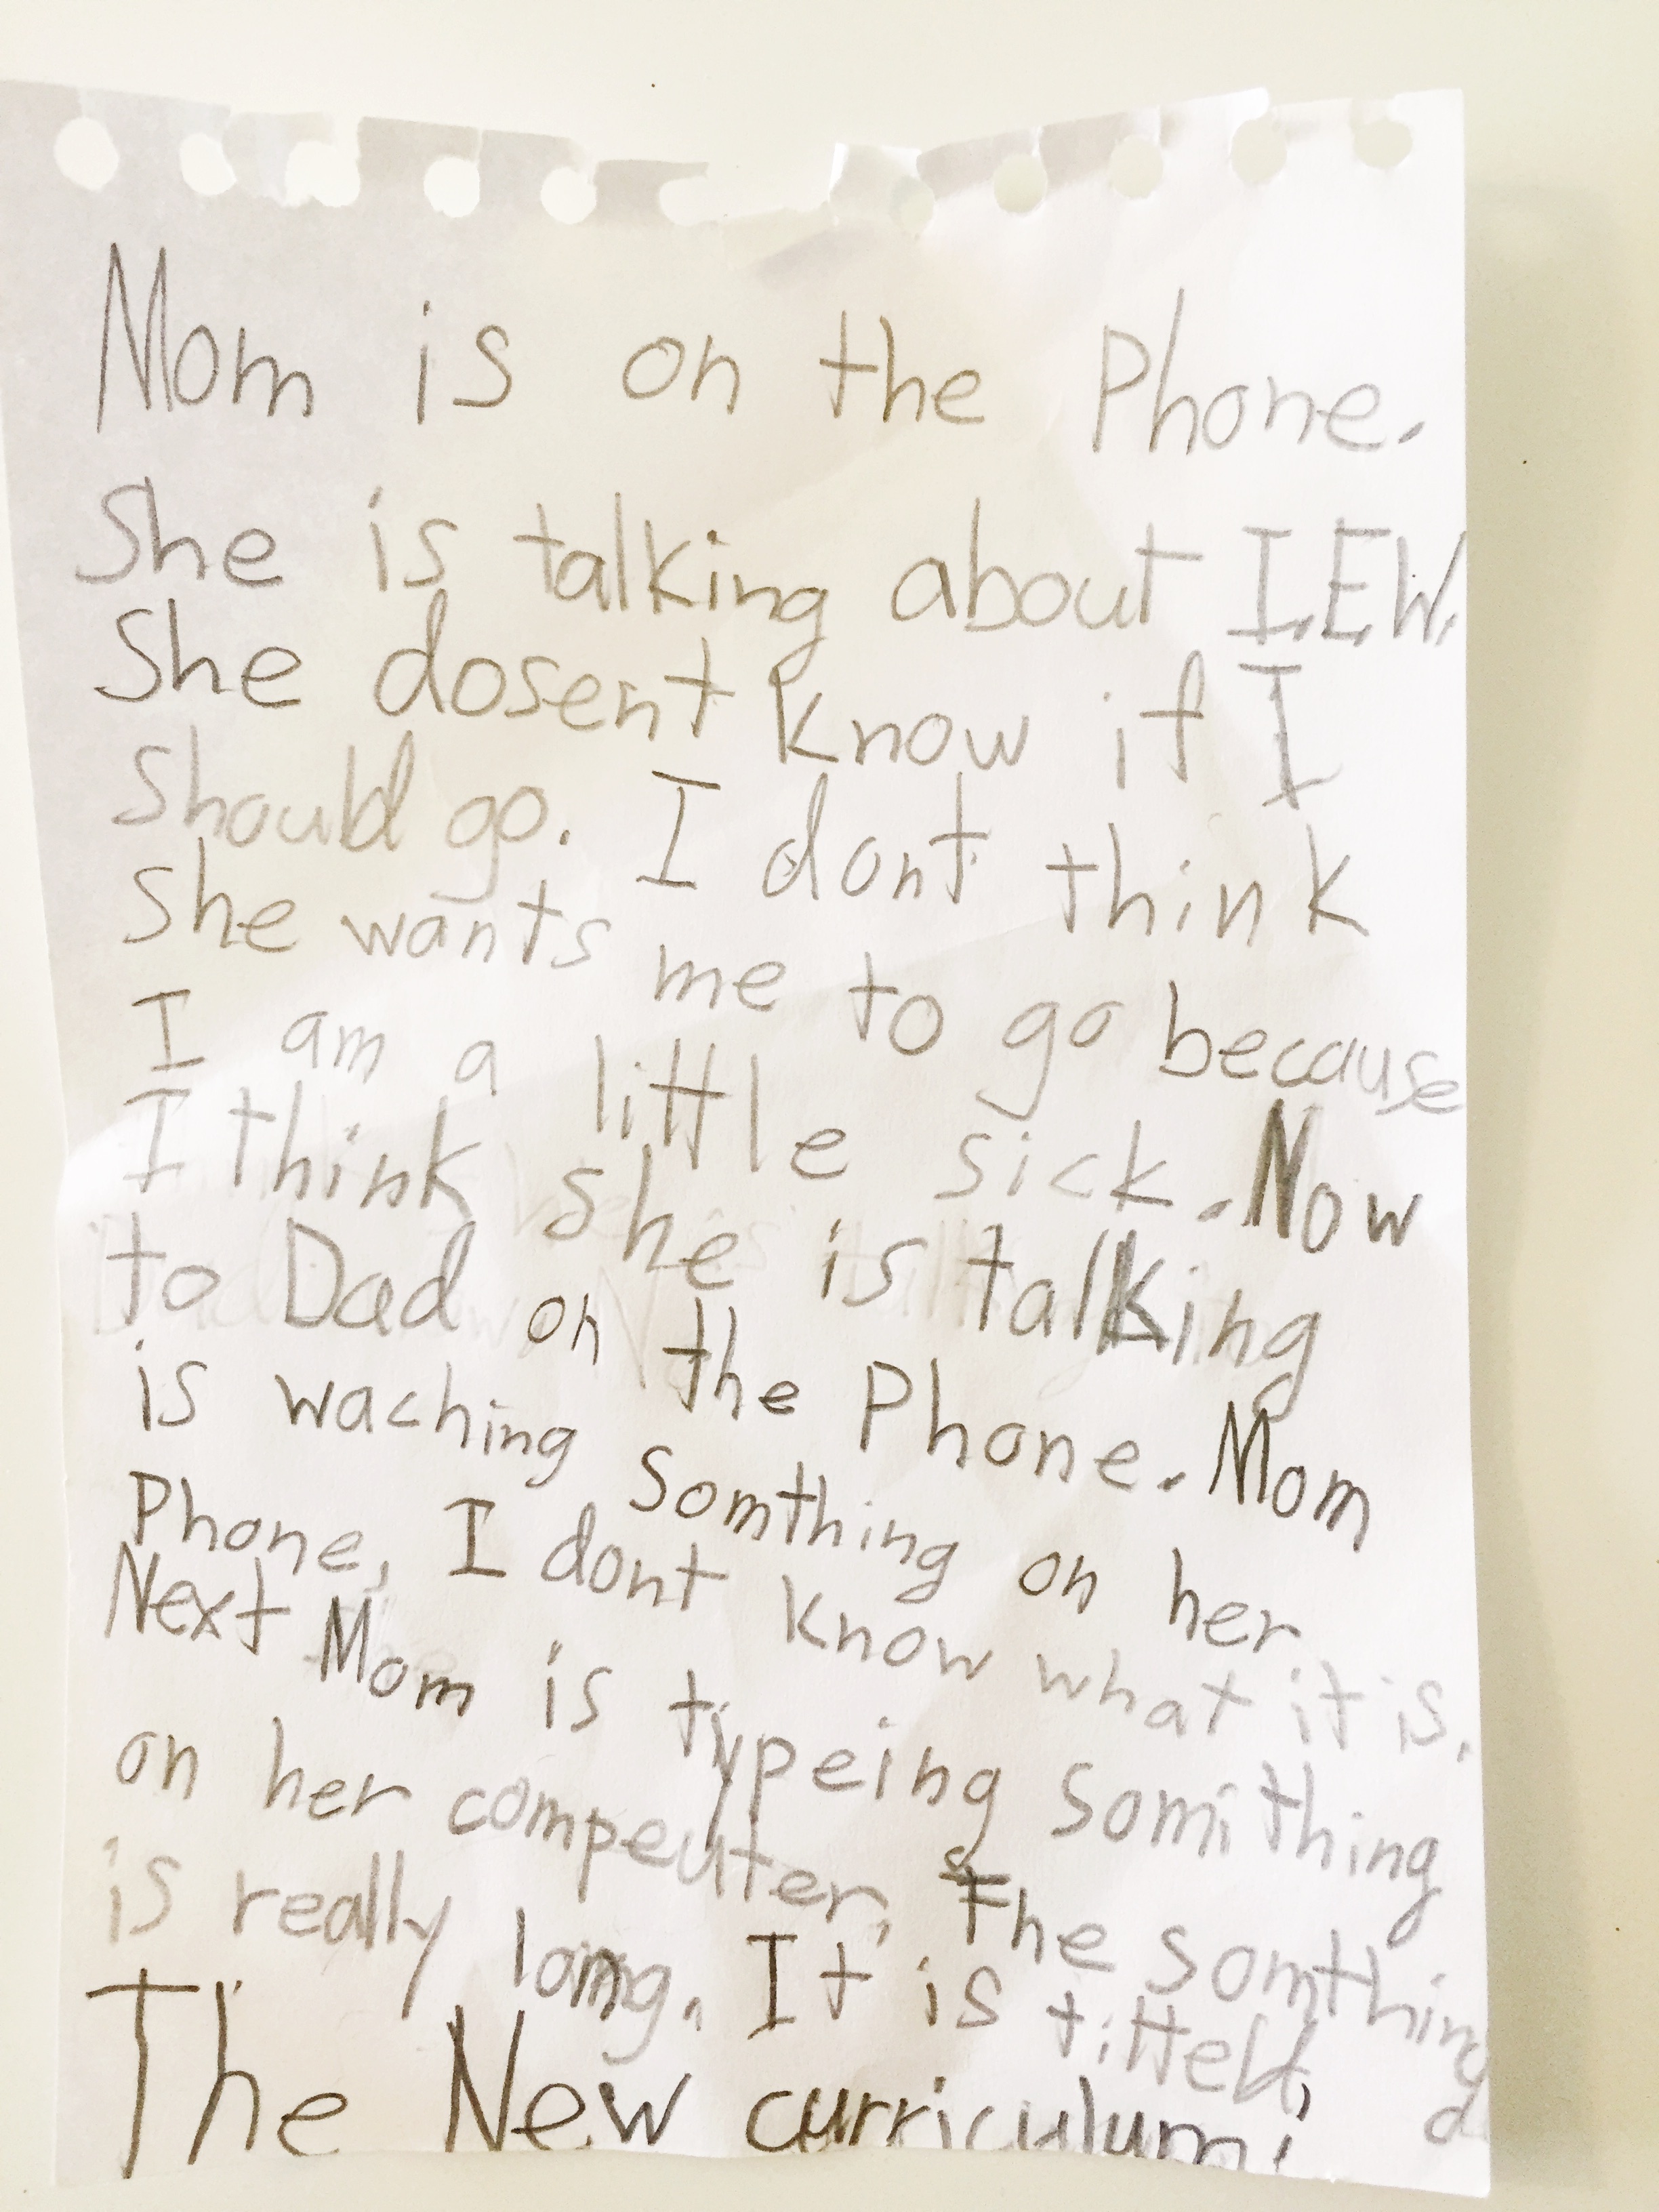 Mom is on the Phone.
She is talking about I.E.W.
She dosent know if I
should go. I dont think
she wants me to go because
I am a little sick. Now
I think she is talking
to Dad on the Phone. Mom
is waching somthing on her
Phone, I dont know what it is.
Next Mom is typeing somithing
on her compeuter, The somthing
is really long. It is titteld,
The New curriculum!